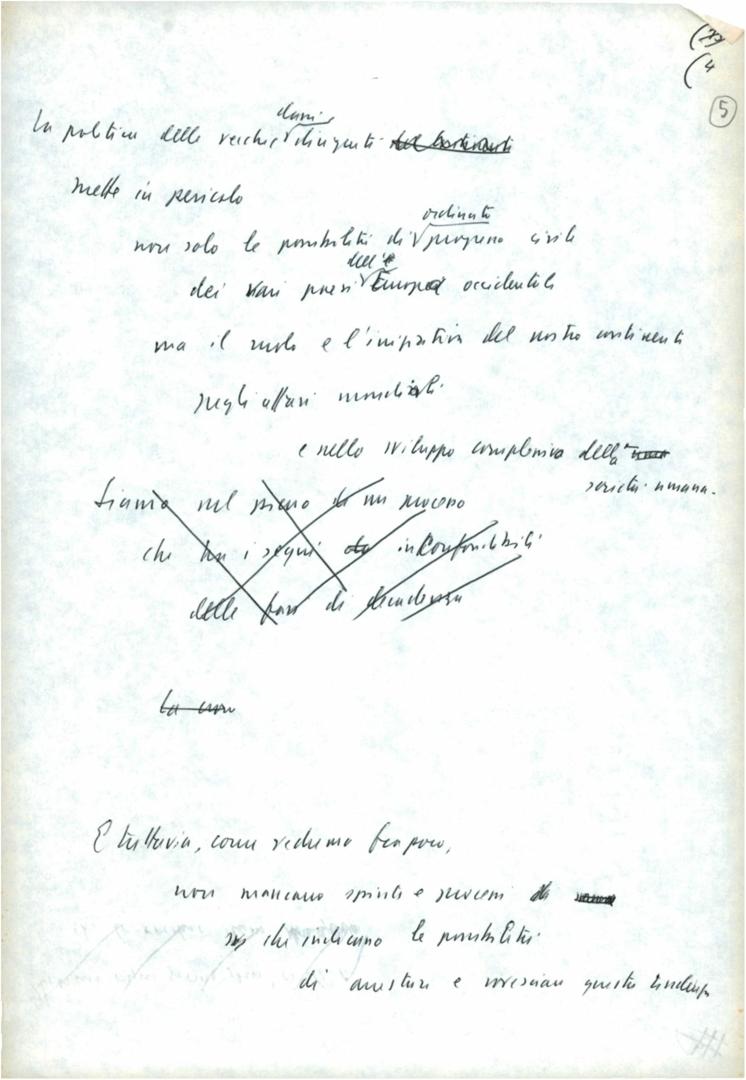 5
La politica delle vecchie classi dirigenti del continente
mette in pericolo
non solo le possibilità di ordinato progresso civile
dei vari paesi dell'Europa occidentale
ma il ruolo e l'iniziativa del nostro continente
negli affari mondiali
e nello sviluppo complessivo della
società umana.
Siamo nel pieno di un processo
che ha i segni inconfondibili
delle fasi di decadenza
La
E tuttavia, come vedremo fra poco,
non mancano spinte e processi
che indicano le possibilità
di arrestare e rovesciare questa tendenza